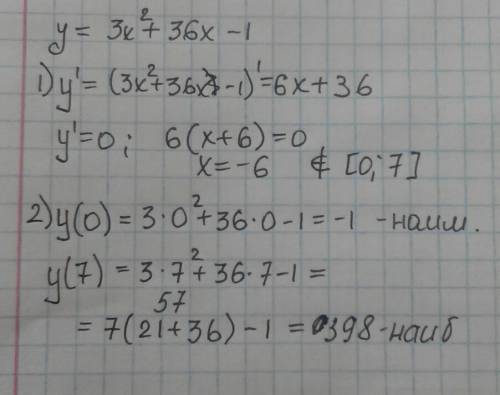 y = 3x² + 36x - 1
1) y' = (3x² + 36x - 1)' = 6x + 36
y' = 0; 6(x+6) = 0
x = -6 ∉ [0; 7]
2) y(0) = 3·0² + 36·0 - 1 = -1 - наим.
y(7) = 3·7² + 36·7 - 1 =
57
= 7(21+36) - 1 = 398 - наиб